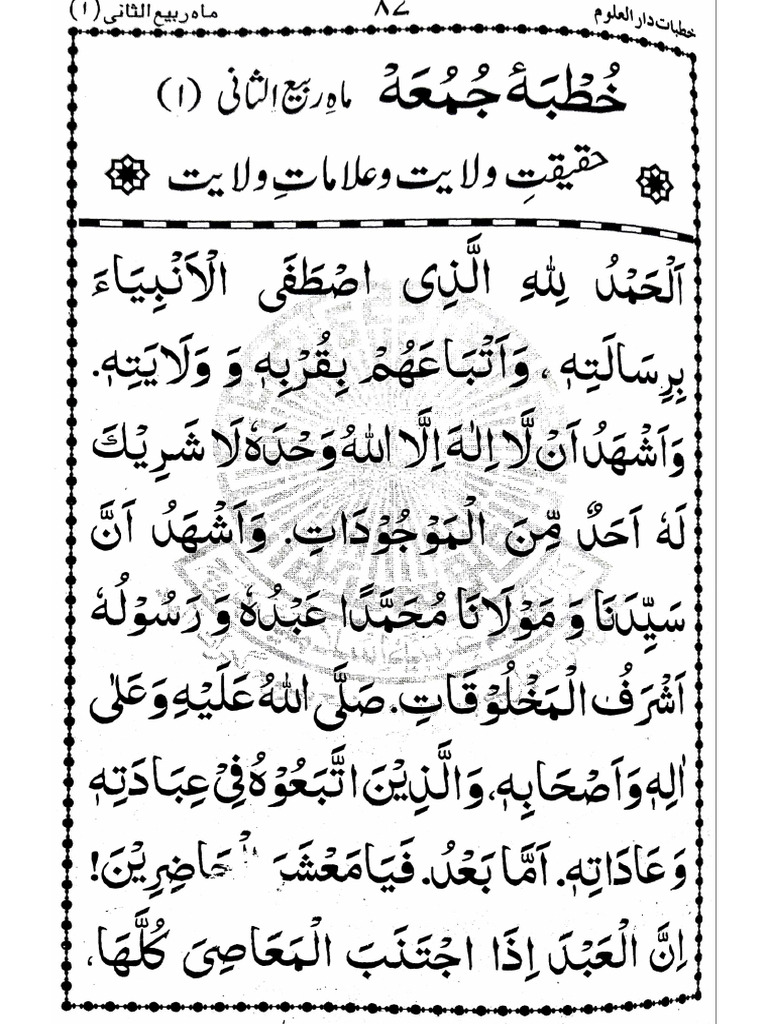 خطبات دار العلوم ۸۲ ماہ ربیع الثانی (۱)
خُطْبَۂ جُمُعَہْ ماہِ ربیع الثانی (۱)
حقیقتِ ولایت و علاماتِ ولایت
اَلْحَمْدُ لِلّٰهِ الَّذِی اصْطَفَی الْاَنْبِیَاءَ
بِرِسَالَتِهٖ، وَاَتْبَاعَهُمْ بِقُرْبِهٖ وَ وَلَایَتِهٖ.
وَاَشْهَدُ اَنْ لَّا اِلٰهَ اِلَّا اللهُ وَحْدَهٗ لَا شَرِیْكَ
لَهٗ اَحَدٌ مِّنَ الْمَوْجُوْدَاتِ. وَاَشْهَدُ اَنَّ
سَیِّدَنَا وَ مَوْلَانَا مُحَمَّدًا عَبْدُهٗ وَ رَسُوْلُهٗ
اَشْرَفُ الْمَخْلُوْقَاتِ. صَلَّی اللهُ عَلَیْهِ وَعَلٰی
اٰلِهٖ وَاَصْحَابِهٖ، وَالَّذِیْنَ اتَّبَعُوْهُ فِیْ عِبَادَتِهٖ
وَعَادَاتِهٖ. اَمَّا بَعْدُ. فَیَا مَعْشَرَ الْحَاضِرِیْنَ!
اِنَّ الْعَبْدَ اِذَا اجْتَنَبَ الْمَعَاصِیَ كُلَّهَا،